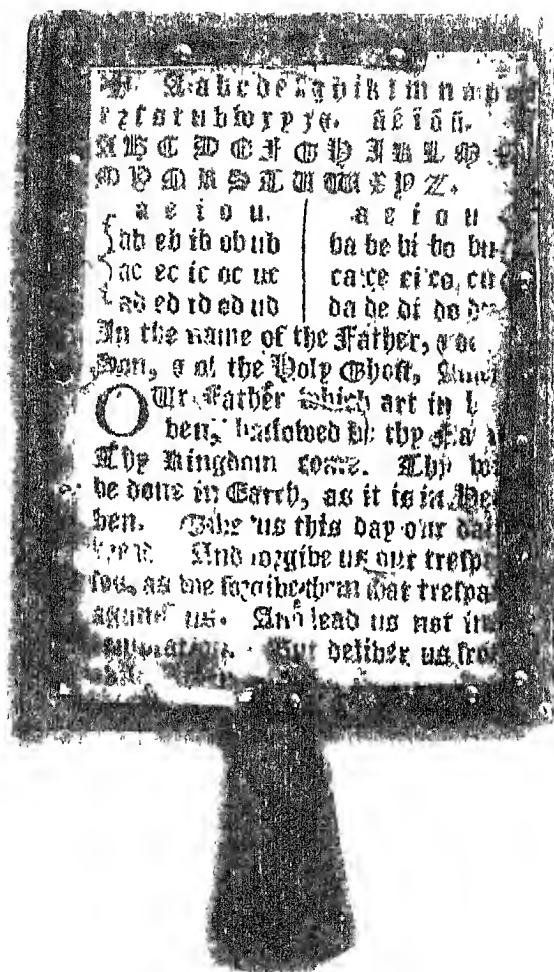 A a b c d e f g h i k l m n o p
r ꝛ ſ s t u v w x y z &. a e i o u.
A B C D E F G H I K L M
O P Q R S T U W X Y Z.
a e i o u. a e i o u
ab eb ib ob ub ba be bi bo bu
ac ec ic oc uc ca ce ci co cu
ad ed id od ud da de di do
In the name of the Father, & of
Son, & of the Holy Ghoſt,
OUr Father which art in
ven, hallowed be thy
Thy Kingdom come. Thy
be done in Earth, as it is in Hea
ven. Give us this day our
And forgive us our treſpaſ
ſes, as we forgive them that treſpaſ
againſt us. And lead us not
But deliver us